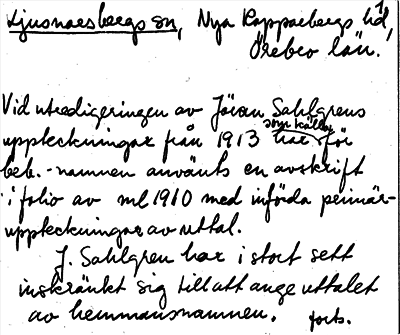 Ljusnarsbergs sn, Nya Kopparbergs hd,
Örebro län.
1
Vid utredigeringen av Jöran Sahlgrens
uppteckningar från 1913 har som källa för
beb.-namnen använts en avskrift
i folio av ml 1910 med införda primär-
uppteckningar av uttal.
J. Sahlgren har i stort sett
inskränkt sig till att ange uttalet
av hemmansnamnen. forts.